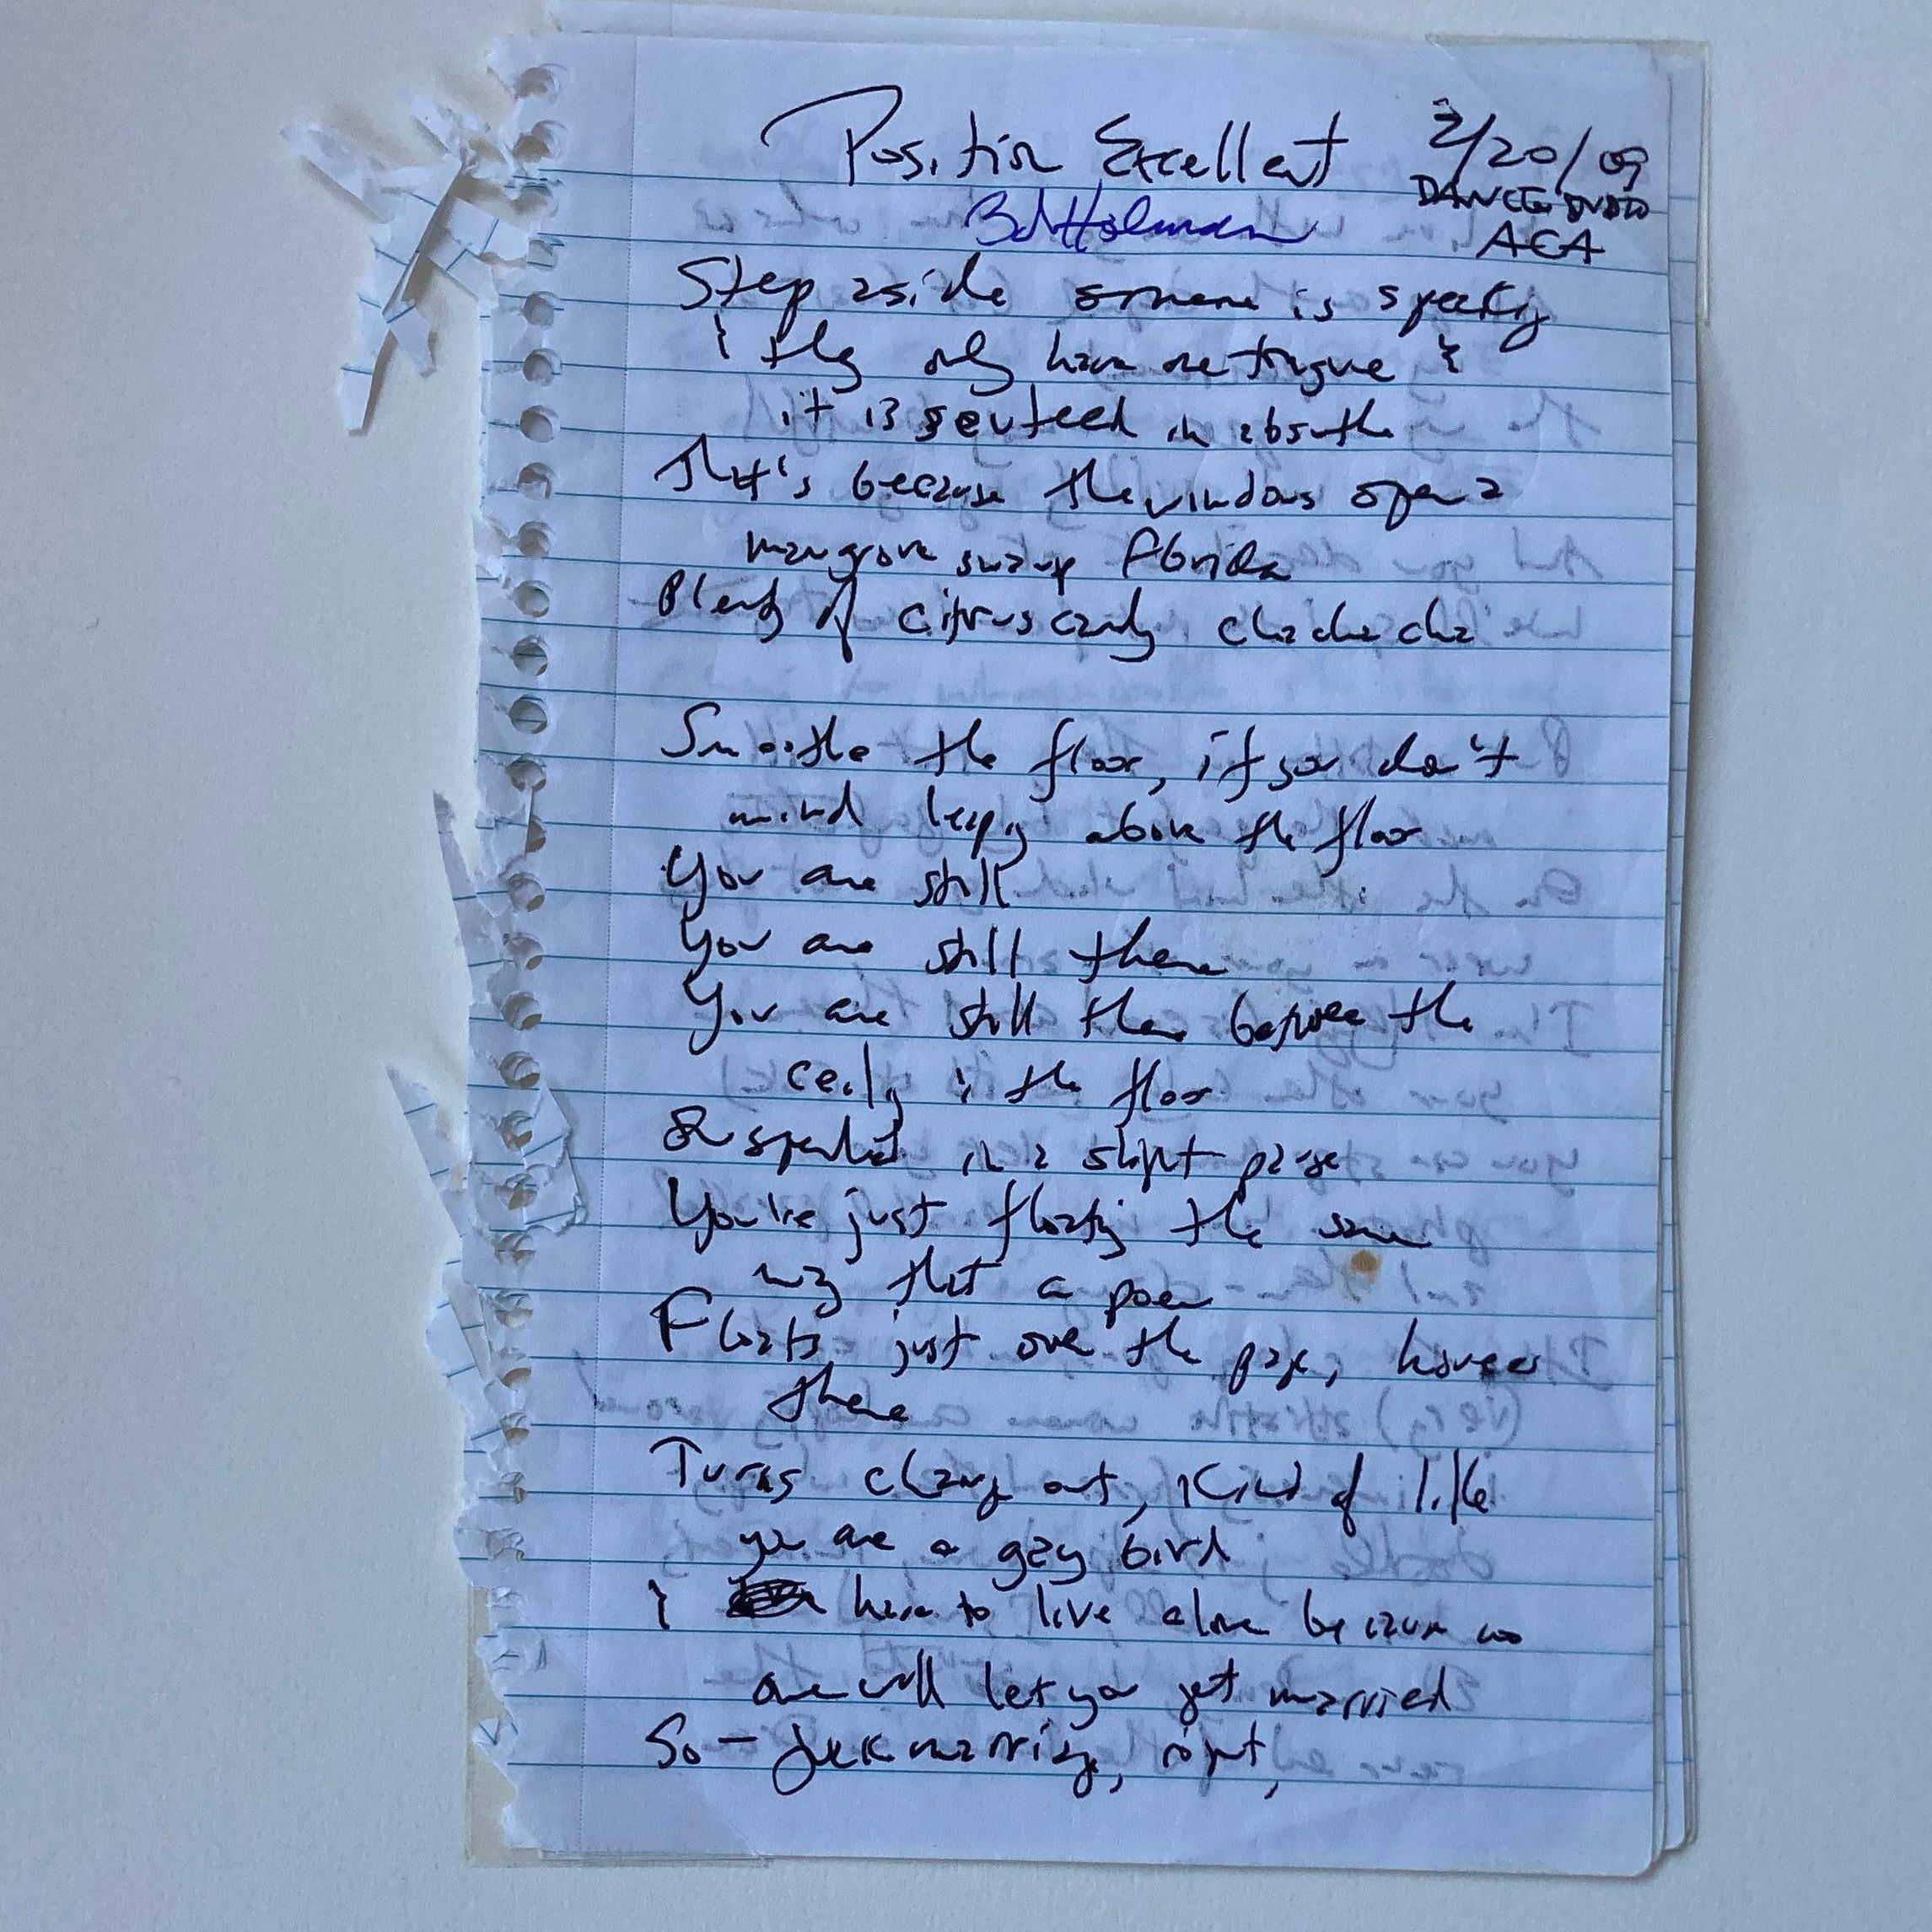 Position Excellent
2/20/09
DANCE STUDIO
ACA
Bob Holman
Step aside someone is speaking
& they only have one tongue &
it is in absinthe
That's because the windows open a
mangrove swamp Florida
Plenty of citrus candy cha cha cha
Smoothe the floor, if you don't
mind leaping above the floor
You are still
You are still there
You are still there before the
ceiling is the floor
in a slight pause
You're just floating the same
way that a poem
Floats just over the page, hovers
there
Turns clang out, kind of like
you are a gay bird
& have to live alone because no
one will let you get married
So — fuck marriage, right,